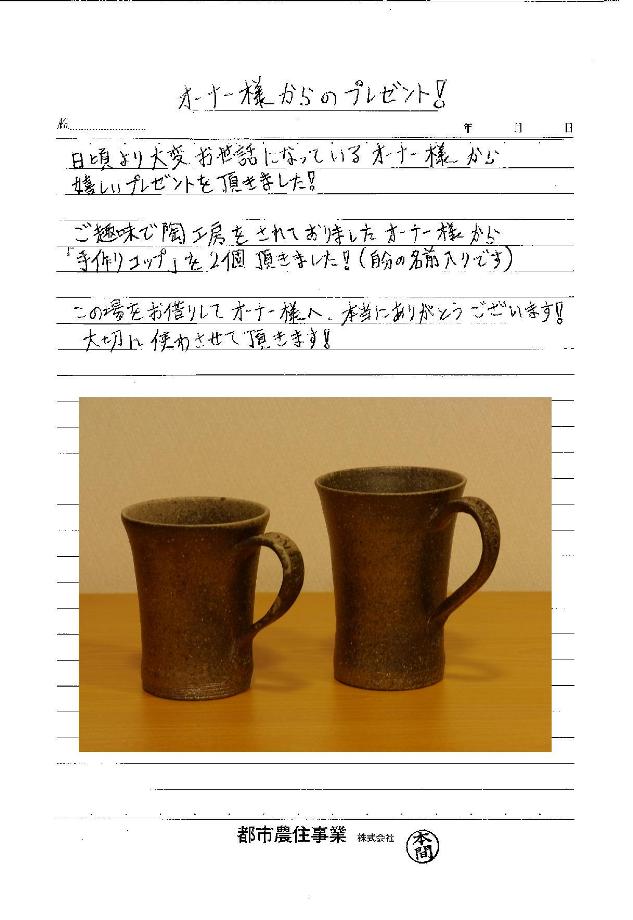 オーナー様からのプレゼント!
No.
年 月 日
日頃より大変お世話になっているオーナー様から
嬉しいプレゼントを頂きました!
ご趣味で陶工房をされておりましたオーナー様から
「手作りコップ」を2個頂きました!(自分の名前入りです)
この場をお借りしてオーナー様へ、本当にありがとうございます!
大切に使わさせて頂きます!
都市農住事業 株式会社 本間